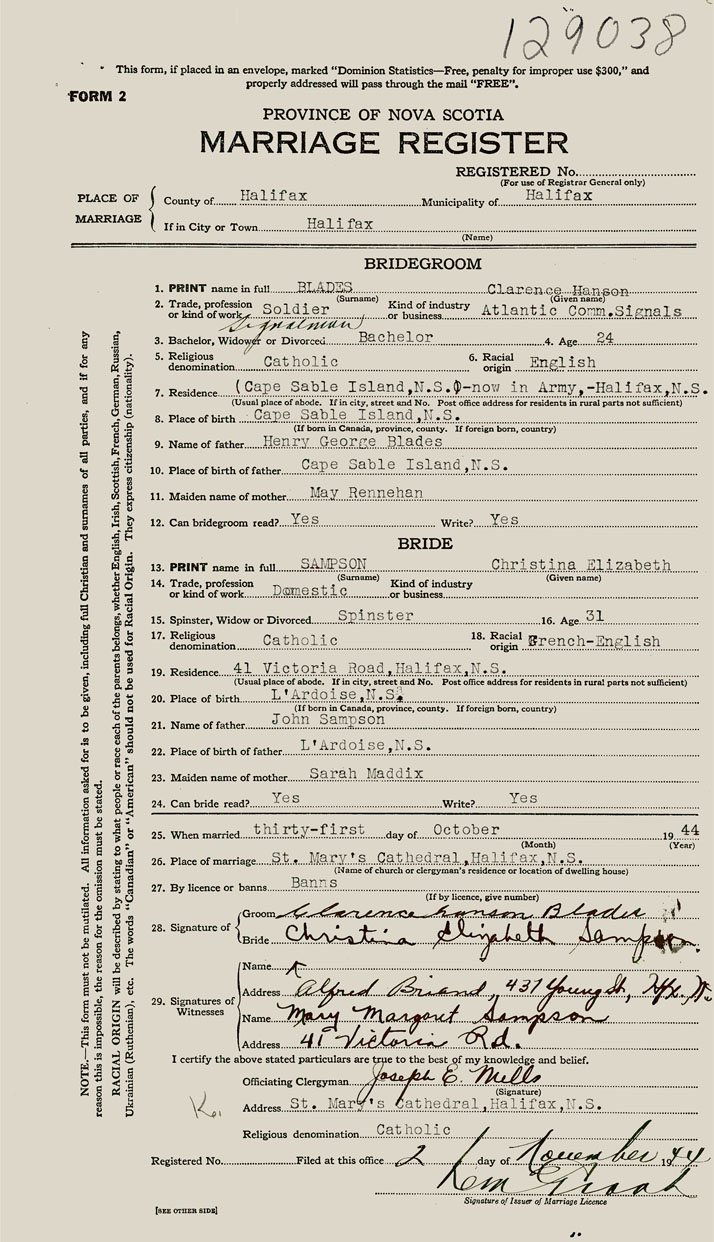 129038
This form, if placed in an envelope, marked "Dominion Statistics—Free, penalty for improper use $300," and
properly addressed will pass through the mail "FREE".
FORM 2
PROVINCE OF NOVA SCOTIA
MARRIAGE REGISTER
REGISTERED No.
(For use of Registrar General only)
PLACE OF MARRIAGE
County of Halifax Municipality of Halifax
If in City or Town Halifax
(Name)
BRIDEGROOM
1. PRINT name in full BLADES Clarence Hanson
(Surname) (Given name)
2. Trade, profession or kind of work Soldier Kind of industry or business Atlantic Comm.Signals
Signalman
3. Bachelor, Widower or Divorced Bachelor 4. Age 24
5. Religious denomination Catholic 6. Racial origin English
7. Residence (Cape Sable Island,N.S.)-now in Army,-Halifax,N.S.
(Usual place of abode. If in city, street and No. Post office address for residents in rural parts not sufficient)
8. Place of birth Cape Sable Island,N.S.
(If born in Canada, province, county. If foreign born, country)
9. Name of father Henry George Blades
10. Place of birth of father Cape Sable Island,N.S.
11. Maiden name of mother May Rennehan
12. Can bridegroom read? Yes Write? Yes
BRIDE
13. PRINT name in full SAMPSON Christina Elizabeth
(Surname) (Given name)
14. Trade, profession or kind of work Domestic Kind of industry or business
15. Spinster, Widow or Divorced Spinster 16. Age 31
17. Religious denomination Catholic 18. Racial origin French-English
19. Residence 41 Victoria Road,Halifax,N.S.
(Usual place of abode. If in city, street and No. Post office address for residents in rural parts not sufficient)
20. Place of birth L'Ardoise,N.S.
(If born in Canada, province, county. If foreign born, country)
21. Name of father John Sampson
22. Place of birth of father L'Ardoise,N.S.
23. Maiden name of mother Sarah Maddix
24. Can bride read? Yes Write? Yes
25. When married thirty-first day of October 1944
(Month) (Year)
26. Place of marriage St. Mary's Cathedral,Halifax,N.S.
(Name of church or clergyman's residence or location of dwelling house)
27. By licence or banns Banns
(If by licence, give number)
28. Signature of
Groom Clarence Hanson Blades
Bride Christina Elizabeth Sampson
29. Signatures of Witnesses
Name
Address Alfred Briand, 437 Young St, Hfx. N.
Name Mary Margaret Sampson
Address 41 Victoria Rd.
I certify the above stated particulars are true to the best of my knowledge and belief.
Officiating Clergyman Joseph E. Mills
(Signature)
Address St. Mary's Cathedral,Halifax,N.S.
Religious denomination Catholic
Registered No. Filed at this office 2 day of November 1944
Signature of Issuer of Marriage Licence
[SEE OTHER SIDE]
NOTE.—This form must not be mutilated. All information asked for is to be given, including full Christian and surnames of all parties, and if for any
reason this is impossible, the reason for the omission must be stated.
RACIAL ORIGIN will be described by stating to what people or race each of the parents belongs, whether English, Irish, Scottish, French, German, Russian,
Ukrainian (Ruthenian), etc. The words "Canadian" or "American" should not be used for Racial Origin. They express citizenship (nationality).